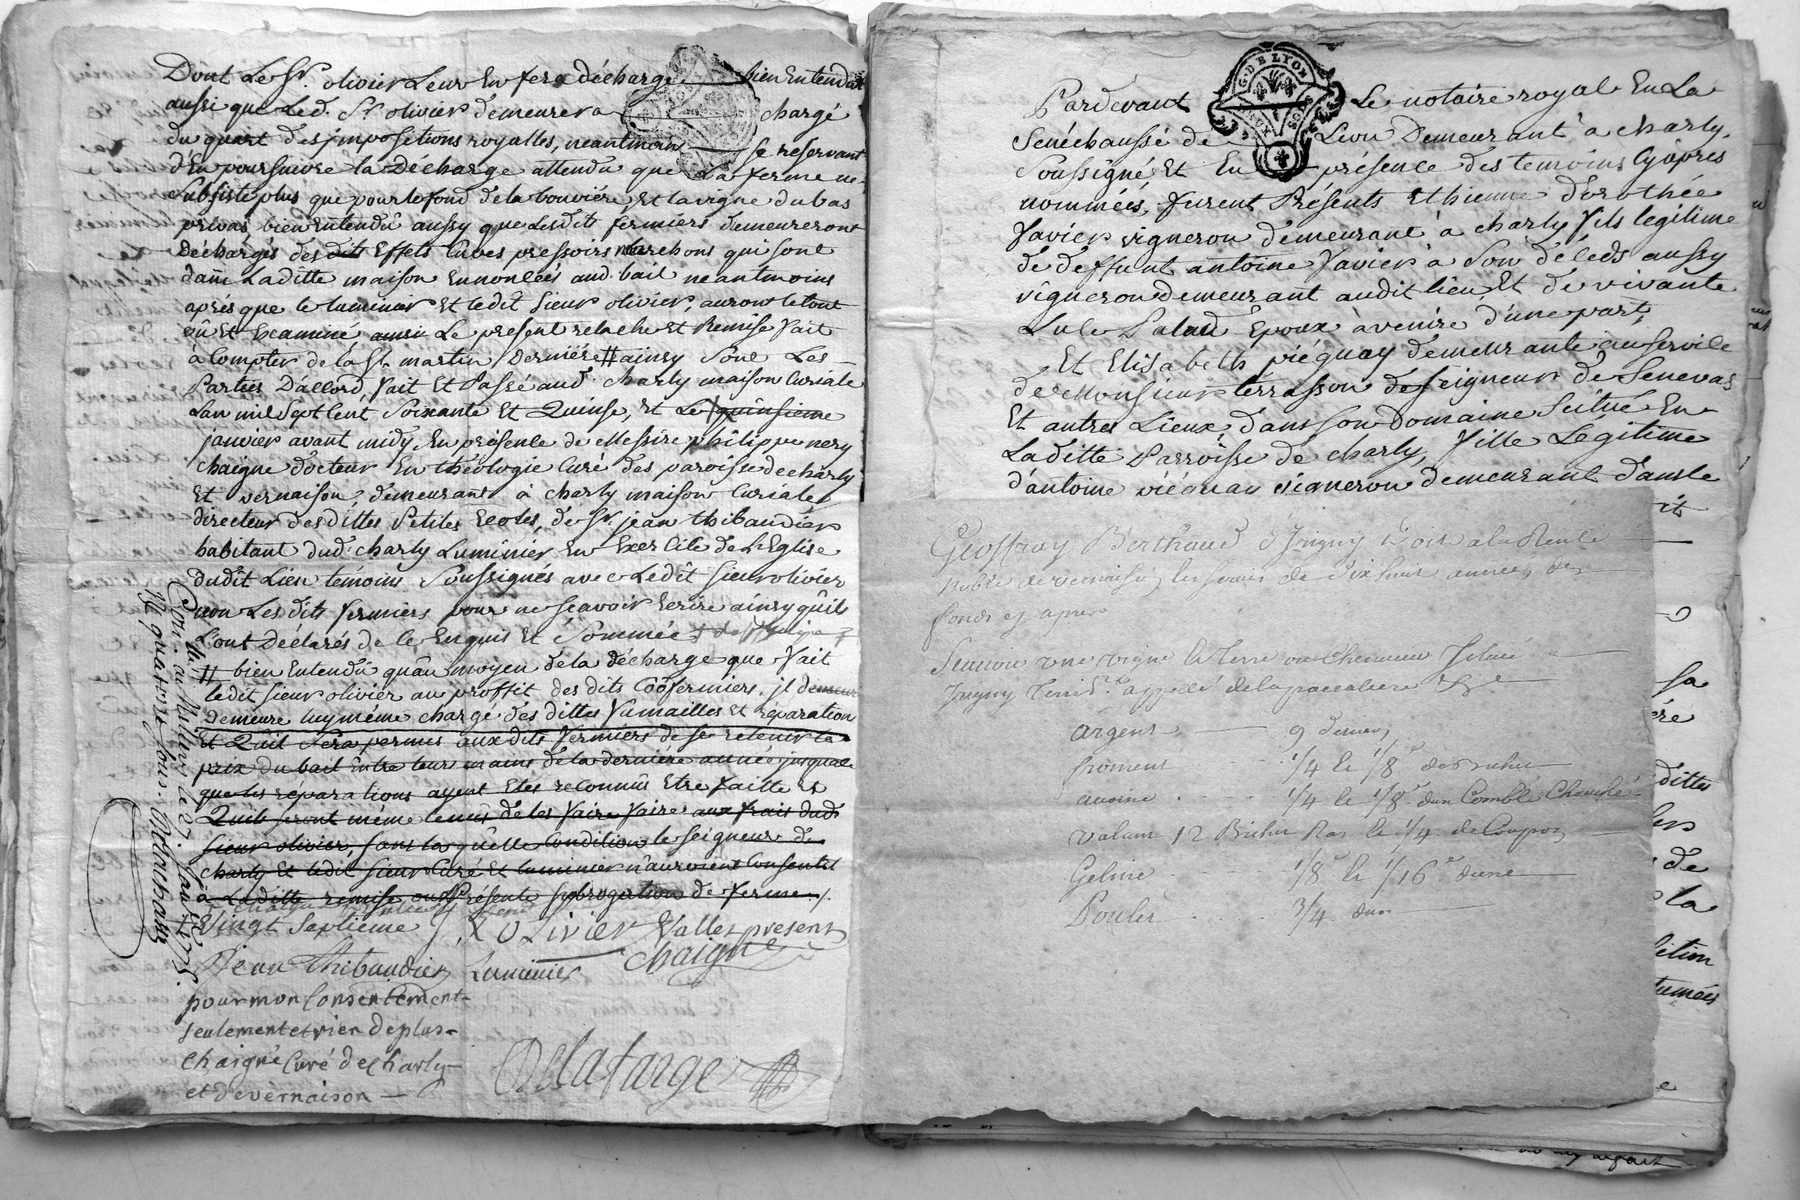 Dont Le Sr. olivier Leur En fera décharge bien Entendu
aussi que Led. Sr olivier demeurera chargé
du quart des jmpositions royalles, neantmoins se reservant
d'En poursuivre la Décharge attendu que La ferme ne
subsiste plus que pour le fond de la bouviere, Et la vigne du bas
privas, bien Entendû aussy que Lesdits fermiers demeureront
Déchargés des dits Effets Cuves pressoirs marchons qui sont
dans Laditte maison Ennoncés aud. bail neantmoins
aprés que le luminier Et ledit sieur olivier, auront le tout
vû Et Examiné, Le present relache Et Remise fait
à Compter de la St. martin derniére # ainsy sont Les
Parties D'accord, fait Et Passé aud. charly maison Curiale
Lan mil Sept Cent Soixante Et Quinse, Et Le quinsieme
janvier avant midy, En présence de Messire philippe nery
chaigne docteur En théologie Curé des paroisse de charly
Et vernaison, demeurant à charly maison Curiale
directeur des dittes Petites Ecoles, de Sr. jean thibaudier
habitant dud. charly Luminier En Exercice de L'Eglise
dudit Lien temoins Soussignés avec Ledit sieur olivier
non Les dits fermiers pour ne scavoir Ecrire ainsy qu'ils
L'ont Declarés de ce Enquis Et Sommée
# bien Entendû qu'au moyen de la décharge que fait
ledit sieur olivier au proffit des dits Coofermiers, jl demeure
demeure luy méme chargé des dittes Vimailles Et réparation
Et Quil Sera permis aux dits fermiers de se retenir le
prix du bail Entre leurs mains de la derniére année jusqua ce
que les réparations ayent Etés reconnûs Etre faitte Et
Quils seront méme tenus de les faire faire aux frais dud.
sieur olivier, sans laquélle Condition le seigneur de
charly Et ledit sieur Curé Et luminier n'auroient Consentit
à Laditte remise ou Présente subrogation de ferme /.
Vingt Septieme olivier Vallet present
Jean thibaudier Luminier chaigne
pour mon Consentement
seulement et rien de plus
chaigne Curé de charly
et de vérnaison
Delafarge
Con. à Millery le
Rd quatorze sous
Pardevant Le notaire royal En La
Senéchaussé de Lion Demeurant à charly,
G. DE LYON
Soussigné Et En présence des temoins Cy aprés
nommées, furent Présents Ethienne dorothée
Javier vigneron demeurant à charly fils legitime
de deffunt antoine Javier à Son décleds aussy
vigneron demeurant audit lieu, Et de vivante
Epoux à venire d'une part,
Et Elisabeth piéguay demeurante au service
de Monsieur terrasson de seigneur de Senevas
Et autres Lieux, dans son Domaine Scitué En
Laditte Parroisse de charly, fille Legitime
d'antoine piéguay vigneron demeurant dans le
Geoffray Berthaud d'Irigny Doit a la Rente
noble de vernaison les servis de dix huit années des
fonds cy apres
Scavoir une vigne la Terre ou Chemin scitué a
Irigny Terrid.
argent 9 deniers
froment 1/4 le 1/8e de Bichet
avoine 1/4 le 1/8e d'un Comble
valant 12 Bichet Ras le 1/4 de Coupon
Geline 1/8e le 1/16e d'une
Poulet 3/4 d'un
sa
ere
dittes
de
la